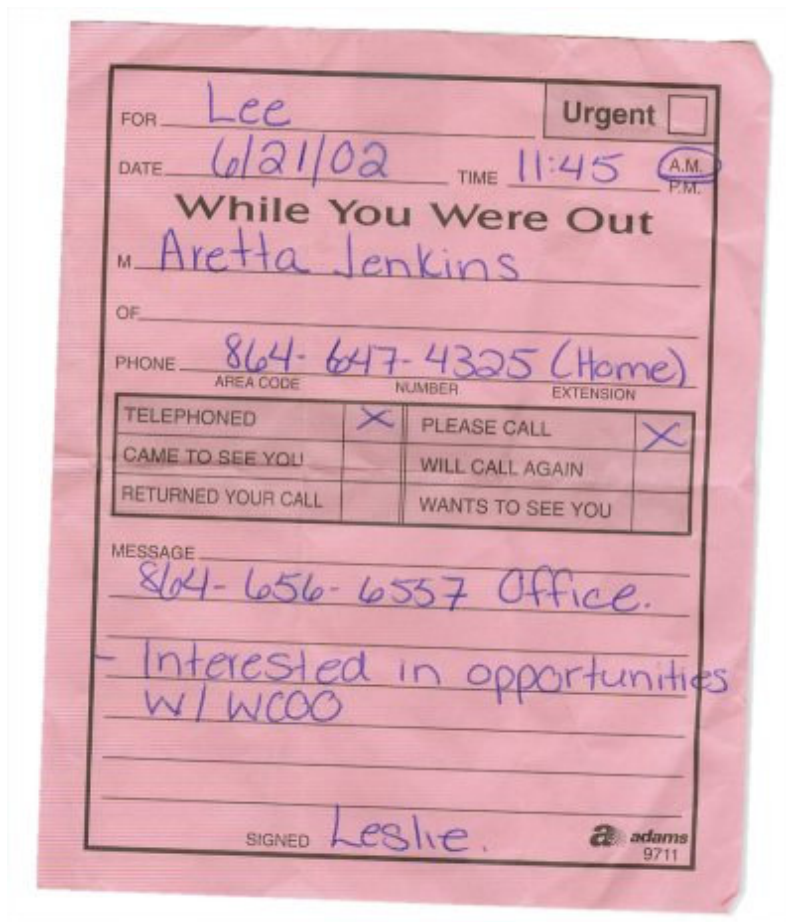 FOR Lee Urgent
DATE 6/21/02 TIME 11:45 A.M.
P.M.
While You Were Out
M Aretta Jenkins
OF
PHONE 864-647-4325 (Home)
AREA CODE NUMBER EXTENSION
TELEPHONED X PLEASE CALL X
CAME TO SEE YOU WILL CALL AGAIN
RETURNED YOUR CALL WANTS TO SEE YOU
MESSAGE
864-656-6557 Office.
- Interested in opportunities
W/ WCOO
SIGNED Leslie.
a adams
9711